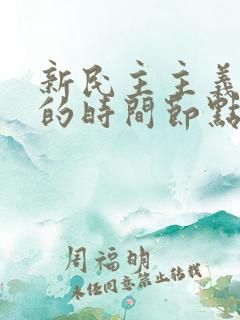 新民主主義
的時間節點
周福明
未經同意禁止轉載